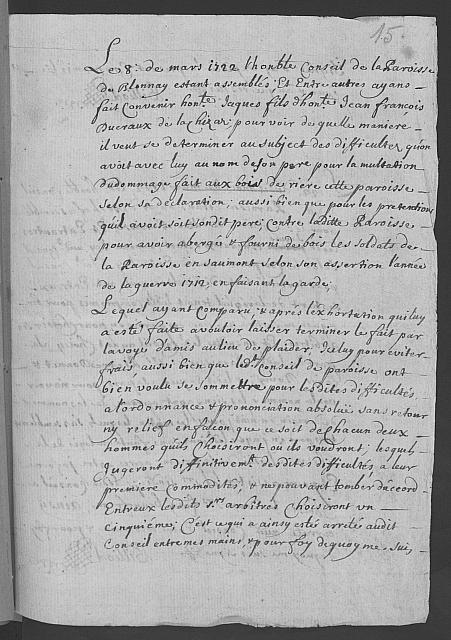 15.
Le 8e. de mars 1722 l'honble Conseil de la Paroisse
de Blonnay estant assemblés; Et Entre autres ayans
fait Convenir honte. Jaques fils d'honte. Jean françois
Ducraux de la Chizaz; pour voir de quelle maniere
il veut se determiner au subject des difficultez qu'on
avoit avec luy au nom de son pere pour la multation
du dommage fait aux bois de riere cette paroisse
selon sa declaration; aussi bien que pour les pretentions
qu'il avoit soit sondit pere, Contre ladite Paroisse
pour avoir abergé & fourni de bois les soldats de
la Paroisse en Saumont selon son assertion l'année
de la guerre 1712, en faisant la garde;
Lequel ayant Comparu, & apres l'exhortation qui luy
a esté faite a vouloir laisser terminer le fait par
la voye d'amis au lieu de plaider, Iceluy pour éviter
frais, aussi bien que ledt. Conseil de paroisse ont
bien voulu se sommettre pour lesdites difficultés
a l'ordonnance & prononciation absolue sans retour
ny relief en façon que ce soit de Chacun deux
hommes qu'ils Choisiront ou ils voudront, lesquels
Jugeront diffinitivemt. desdites difficultés a leur
premiere Commodité, & ne pouvant tomber d'accord
Entreux lesdits Srs. arbitres Choisiront un
Cinquieme; C'est ce qui a ainsy esté arresté audit
Conseil entre mes mains, & pour foy de quoy me suis